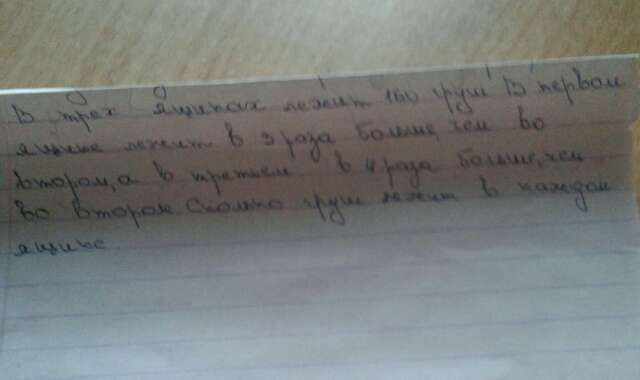 В трех ящиках лежит 160 груш В первом
ящике лежит в 3 раза больше, чем во
втором, а в третьем в 4 раза больше, чем
во втором. Сколько груш лежит в каждом
ящике.